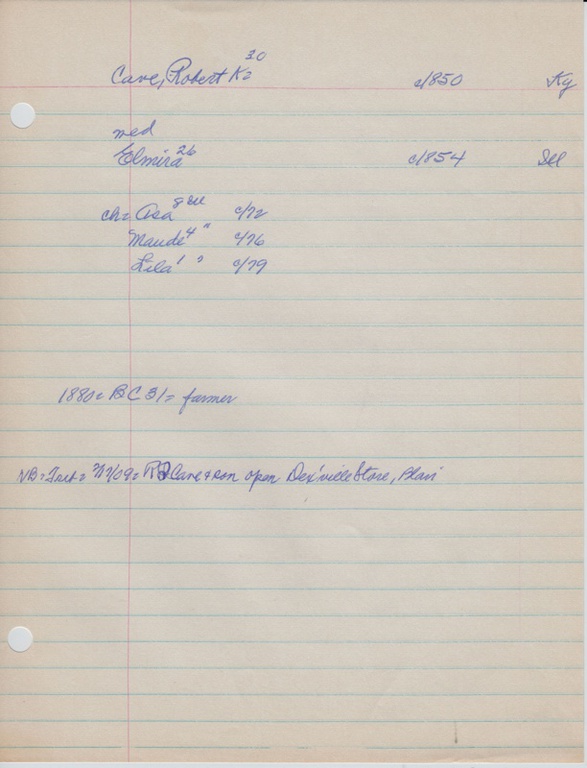 Cave, Robert K= 30 c/850 Ky
med
Elmira 26 c/854 Ill
ch= Asa 8 Ill c/72
Maude 4 " c/76
Lila 1 " c/79
1880= BC 31= farmer
VB= = Cave & son open Dex'ville Store,